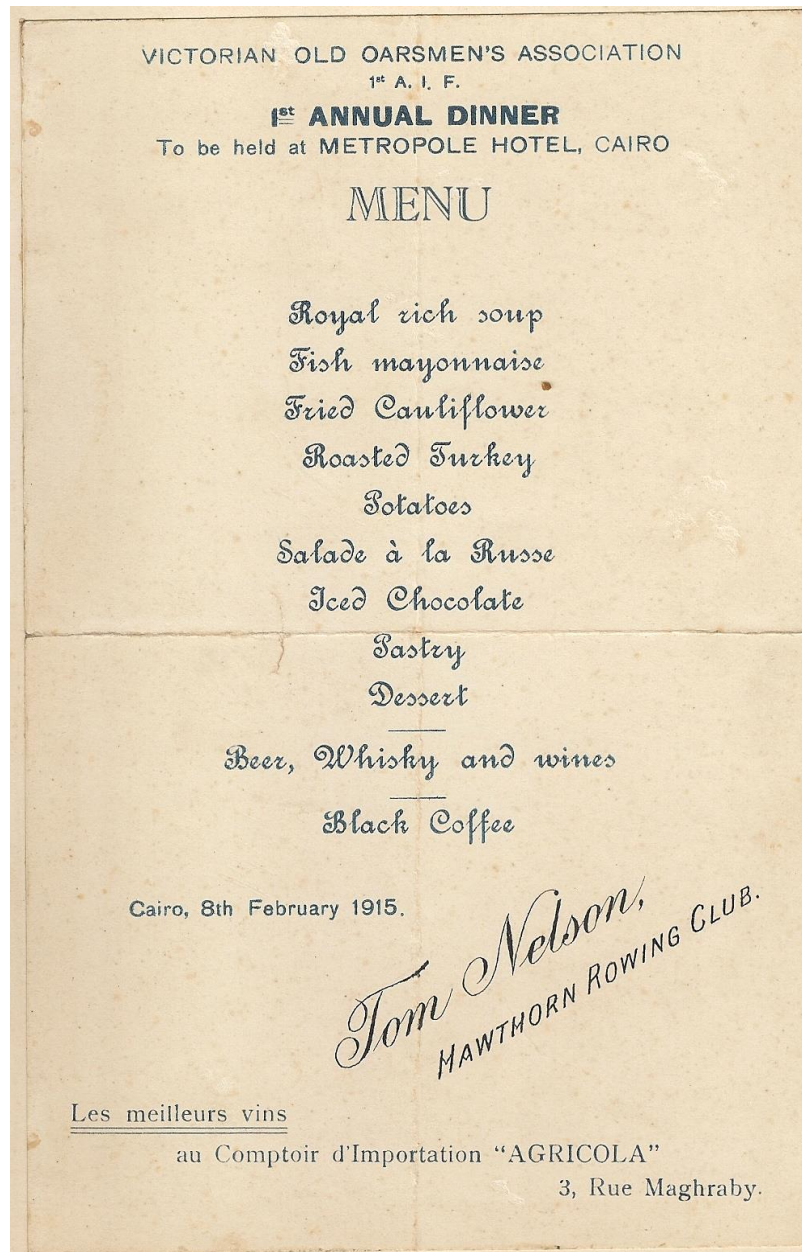 VICTORIAN OLD OARSMEN'S ASSOCIATION
1st A. I. F.
1st ANNUAL DINNER
To be held at METROPOLE HOTEL, CAIRO
MENU
Royal rich soup
Fish mayonnaise
Fried Cauliflower
Roasted Turkey
Potatoes
Salade à la Russe
Iced Chocolate
Pastry
Dessert
Beer, Whisky and wines
Black Coffee
Cairo, 8th February 1915.
Tom Nelson,
HAWTHORN ROWING CLUB.
Les meilleurs vins
au Comptoir d'Importation "AGRICOLA"
3, Rue Maghraby.